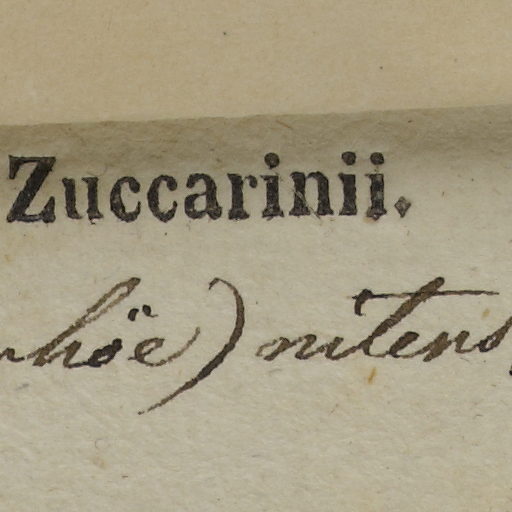 Zuccarinii.
höe) nitens